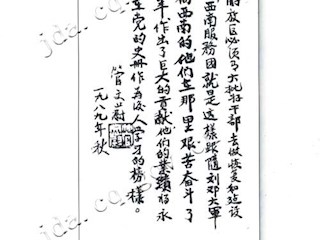 解放区必须有大批好干部去做恢复和建设
西南服务团就是这样跟随刘邓大军
西南的,他们在那里艰苦奋斗了
年作出了巨大的贡献他们的业绩将永
在党的史册作为后人学习的榜样。
管文蔚
一九八九年秋